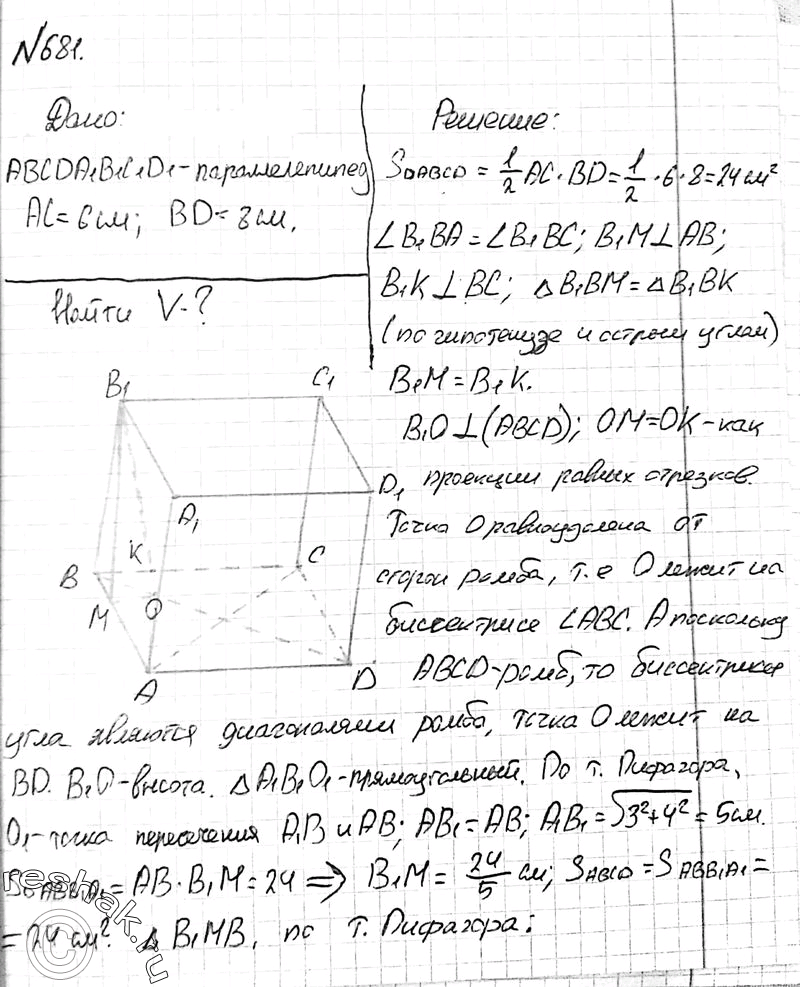 №681.
Дано:
ABCDA₁B₁C₁D₁ - параллелепипед
AC = 6 см; BD = 8 см.
Найти V - ?
Решение:
S◊ABCD = 1/2 AC · BD = 1/2 · 6 · 8 = 24 см²
∠B₁BA = ∠B₁BC; B₁M ⊥ AB;
B₁K ⊥ BC; △B₁BM = △B₁BK
(по гипотенузе и острым углам)
B₁M = B₁K.
B₁O ⊥ (ABCD); OM = OK - как
проекции равных отрезков.
Точка O равноудалена от
сторон ромба, т.е O лежит на
биссектрисе ∠ABC. А поскольку
ABCD - ромб, то биссектрисы
угла являются диагоналями ромба, точка O лежит на
BD. B₁O - высота. △A₁B₁O₁ - прямоугольный. По т. Пифагора,
O₁ - точка пересечения A₁B и AB; AB₁ = AB; A₁B₁ = √3² + 4² = 5 см.
S◊ABB₁A₁ = AB · B₁M = 24 ⟹ B₁M = 24/5 см; SABCD = SABB₁A₁ =
= 24 см². △ B₁MB, по т. Пифагора:
B₁
C₁
D₁
A₁
K
C
B
M
O
A
D
© reshak.ru